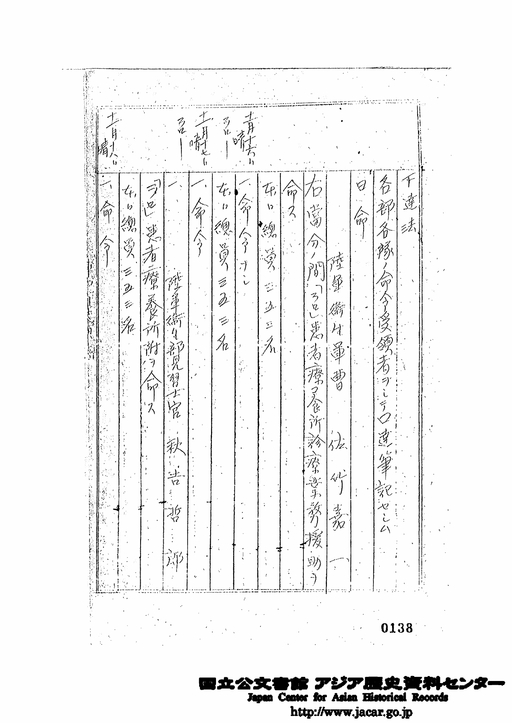 下達法
各部各隊ノ命令受領者ヲシテ口達筆記セシム
日命
陸軍衛生軍曹 佐竹嘉一
右當分ノ間「ラロ」患者療養所診療業務援助ヲ
命ス
本日總員三五三名
一、命令ナシ
本日總員三五三名
一、命令
陸軍衛生部見習士官 秋吉哲郎
「ラロ」患者療養所附ヲ命ス
本日總員三五三名
一、命令
0138
国立公文書館 アジア歴史資料センター
Japan Center for Asian Historical Records
http://www.jacar.go.jp